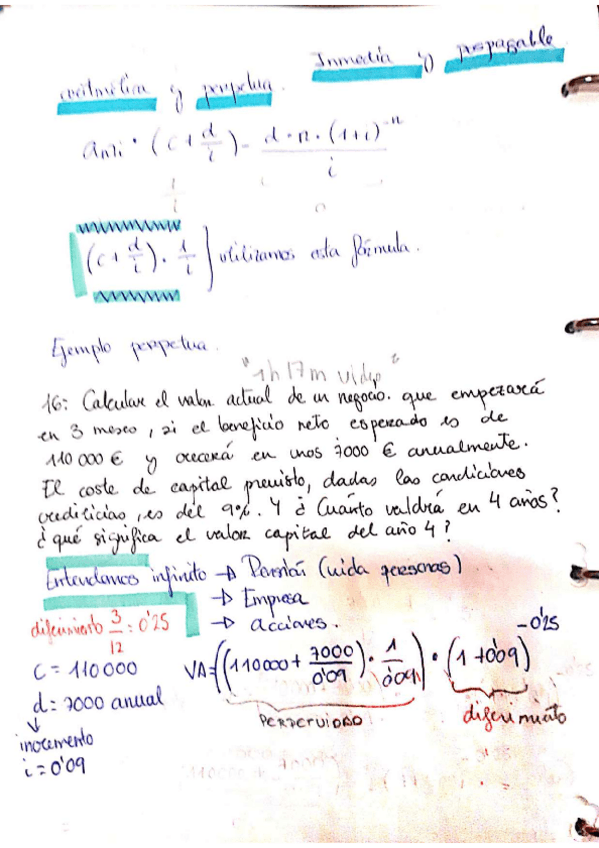 Inmedia y prepagable
aritmética y perpetua.
an¬i · (c + d/i) - d·n·(1+i)^-n / i
1/i
0
(c + d/i) · 1/i ] utilizamos esta fórmula.
Ejemplo perpetua.
"1h 17m video"
16: Calcular el valor actual de un negocio. que empezará
en 3 meses, si el beneficio neto esperado es de
110 000 € y crecerá en unos 7000 € anualmente.
El coste de capital previsto, dadas las condiciones
crediticias, es del 9%. Y ¿Cuánto valdrá en 4 años?
¿qué significa el valor capital del año 4?
Entendamos infinito → Rentas (vida personas)
→ Empresa
→ acciones.
diferimiento 3/12 : 0'25
C = 110000
VA = ((110000 + 7000/0'09) · 1/0'09) · (1 + 0'09)^-0'25
d: 7000 anual
PERPETUIDAD
diferimiento
↓
incremento
i = 0'09